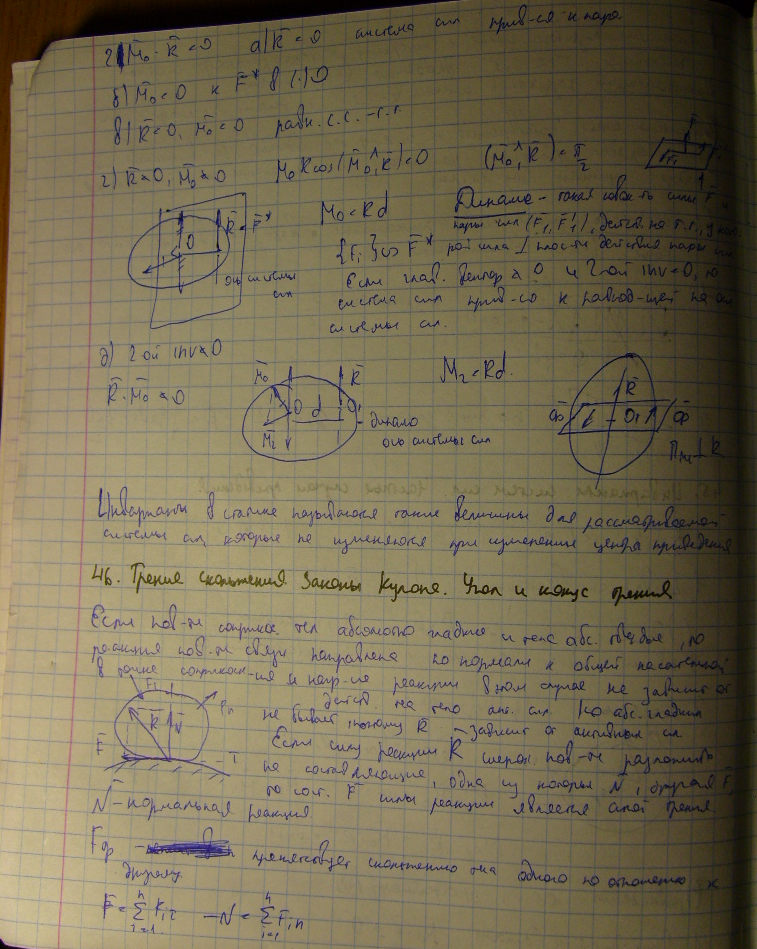 2) M̄₀ · R̄ = 0 а) R̄ = 0 система сил прив-ся к паре
б) M̄₀ = 0 к F̄* в (.) O
в) R̄ = 0, M̄₀ = 0 равн. с.с.
г) R̄ ≠ 0, M̄₀ ≠ 0 M₀ R cos(M̄₀^R̄) = 0 (M̄₀^R̄) = π/2
F̄₁
M₀ = Rd
Динамо - такая совок-ть силы F̄ и
пары сил (F̄₁, F̄₁'), действ. на т.т., у
{F̄ᵢ} ∽ F̄* рой сила ⊥ плос-ти действия пары
O R̄ = F̄*
ось системы
сил
Если глав. вектор ≠ 0 и 2ой inv = 0, то
система сил прив-ся к равнод-щей на оси
системы сил.
д) 2ой inv ≠ 0
R̄ · M̄₀ ≠ 0
M̄₀ R̄ O d O₁ M̄₂
- динамо
ось системы сил
M₂ = Rd.
R̄ O₁
⊥ R
Инварианты в статике называются такие величины для рассматриваемой
системы сил, которые не изменяются при изменении центра приведения
46. Трение скольжения. Законы Кулона. Угол и конус трения
Если пов-ти соприкас. тел абсолютно гладкие и тела абс. твёрдые, то
реакция пов-ти связи направлена по нормали к общей касательной
в точке соприкосн-ия и напр-ие реакции в этом случае не зависит от
действ. на тело акт. сил. Но абс. гладких
не бывает поэтому R̄ - зависит от активных сил
F̄₁ F̄ₙ R̄ N̄ F̄ τ
Если силу реакции R̄ шерох. пов-ти разложить
на составляющие, одна из которых N̄, другая F̄,
то сост. F̄ силы реакции является силой трения.
N̄ - нормальная реакция.
Fтр - препятствует скольжению тела одного по отношению к
другому
F̄ = Σ Fᵢτ i=1 n - N = Σ Fᵢn i=1 n